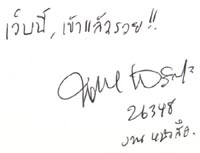 เว็บนี้, เข้าแล้วรวย!!
26348
งาน หนังสือ.